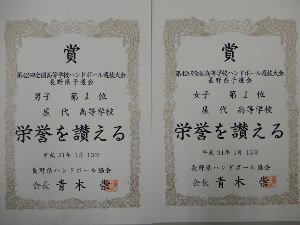 賞
第42回全国高等学校ハンドボール選抜大会
長野県予選会
男子 第1位
屋代高等学校
栄誉を讃える
平成31年1月13日
長野県ハンドボール協会
会長 青木 崇
賞
第42回全国高等学校ハンドボール選抜大会
長野県予選会
女子 第1位
屋代高等学校
栄誉を讃える
平成31年1月13日
長野県ハンドボール協会
会長 青木 崇